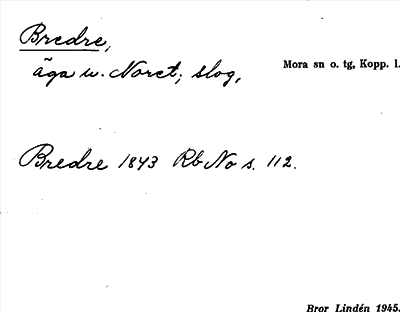 Bredre,
äga u. Noret; slog,
Mora sn o. tg, Kopp. l.
Bredre 1843 Rb No s. 112.
Bror Lindén 1945.